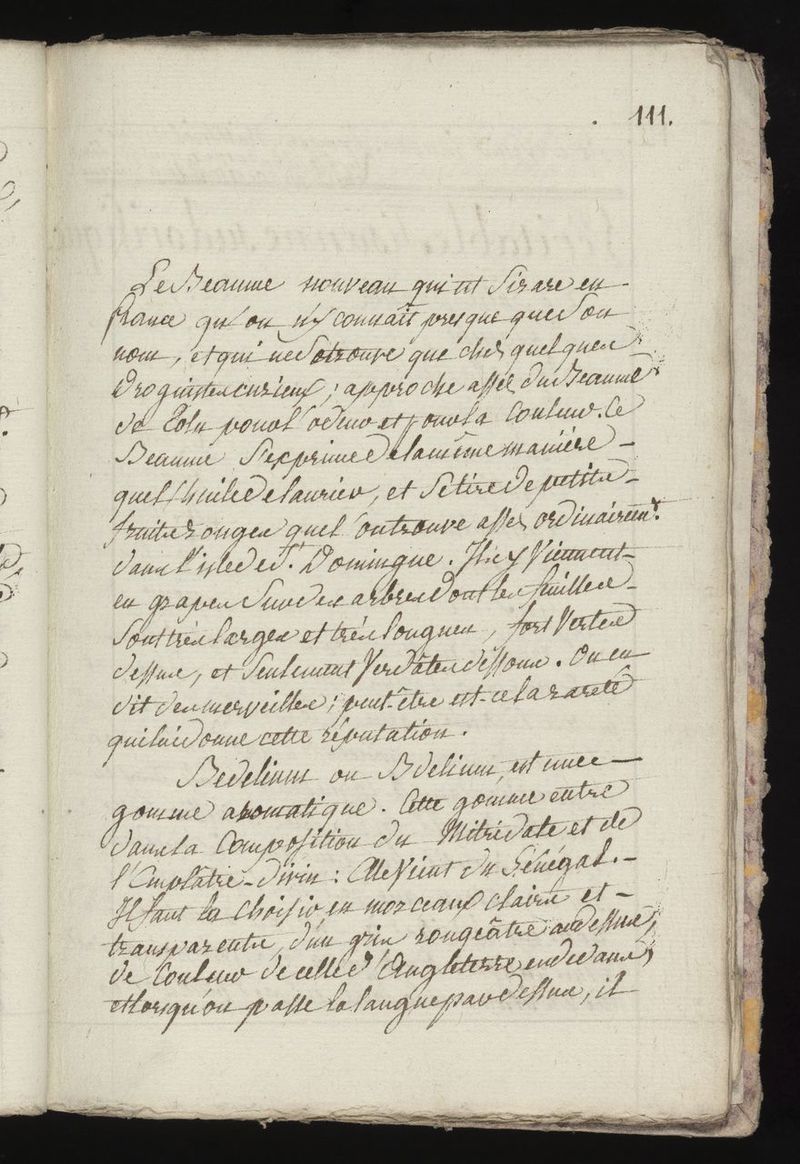 111.
Le Beaume nouveau qui est si rare en
france qu'on n'y connaît presque que son
nom, et qui ne se trouve que chés quelques
Droguistes curieux; approche assés du Beaume
de Tolu pour l'odeur et pour la Couleur. Ce
Beaume s'exprime de la même manière
que l'huile de laurier, et se tire de petits
fruits rouges que l'on trouve assés ordinairemt.
dans l'isle de St. Domingue. Ils y viennent
en grapes sur des arbres dont les feuilles
sont très larges et très longues, fort vertes
dessus, et seulement verdâtres dessous. On en
dit des merveilles; peut-être est-ce la rareté
qui lui donne cette réputation.
Bedelium ou Bdelium, est une
gomme aromatique. Cette gomme entre
dans la Composition du Mitridate et de
l'Emplâtre-divin: Elle vient du Sénégal.
Il faut la choisir en morceaux clairs et
transparents, d'un gris rougeâtre au dessus,
de Couleur de colle d'Angleterre en dedans,
et lorsqu'on passe la langue par dessus, il